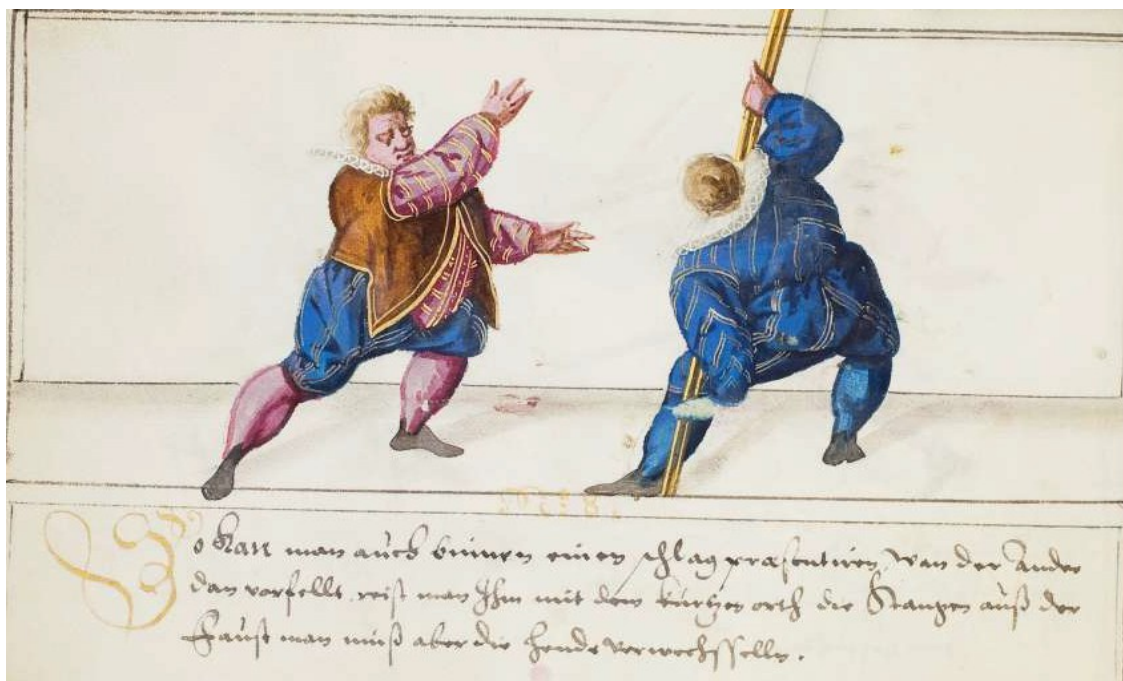 So kan man auch binnen einen schlag præsentiren, wan der Ander
dan vorfellt, reist man Ihm mit dem kurtzen orth die Stangen auß der
Faust man muß aber die hende verwechsselln.